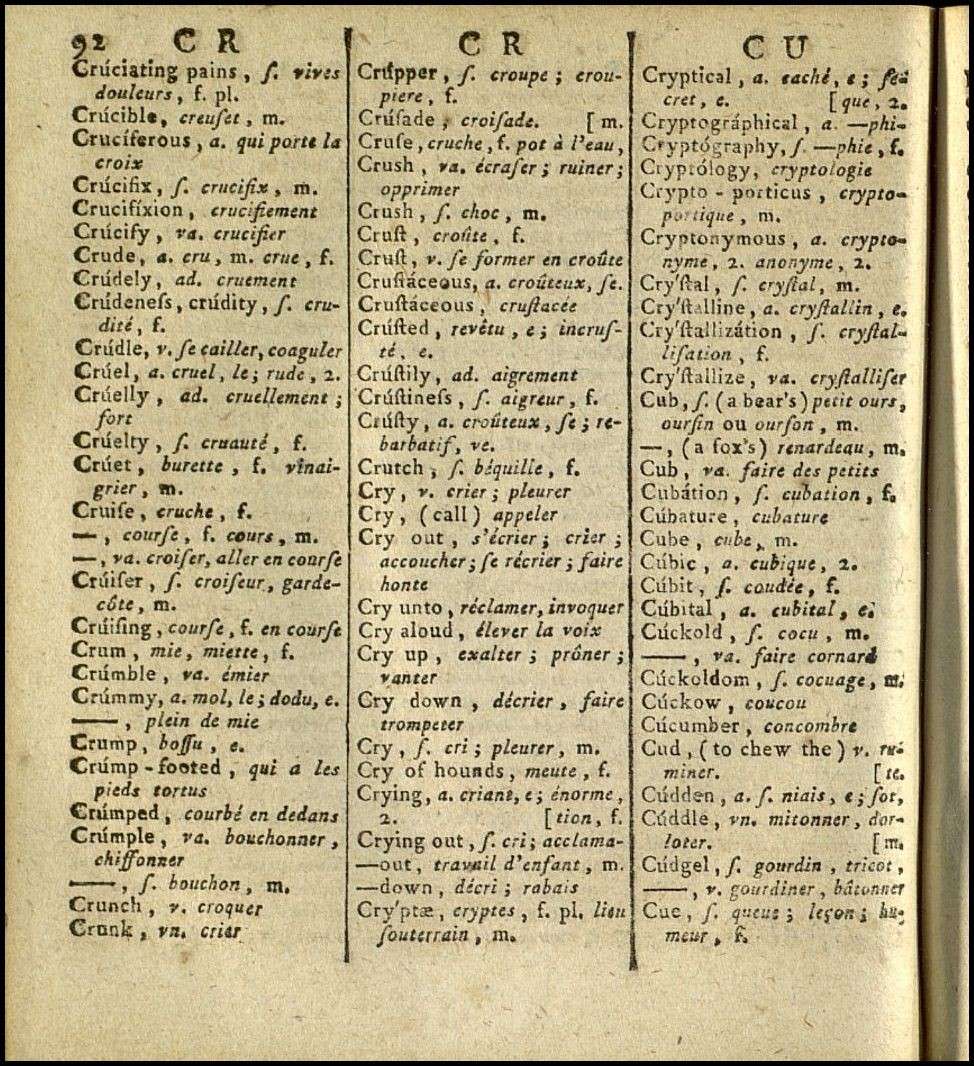 92 C R
Crúciating pains, ſ. vives
douleurs, f. pl.
Crúcible, creuſet, m.
Crucíferous, a. qui porte la
croix
Crúcifix, ſ. crucifix, m.
Crucifíxion, crucifiement
Crúcify, va. crucifier
Crude, a. cru, m. crue, f.
Crúdely, ad. cruement
Crúdeneſs, crúdity, ſ. cru-
dité, f.
Crúdle, v. ſe cailler, coaguler
Crúel, a. cruel, le; rude, 2.
Crúelly, ad. cruellement;
fort
Crúelty, ſ. cruauté, f.
Crúet, burette, f. vinai-
grier, m.
Cruiſe, cruche, f.
—, courſe, f. cours, m.
—, va. croiſer, aller en courſe
Crúiſer, ſ. croiſeur, garde-
côte, m.
Crúiſing, courſe, f. en courſe
Crum, mie, miette, f.
Crúmble, va. émier
Crúmmy, a. mol, le; dodu, e.
——, plein de mie
Crump, boſſu, e.
Crúmp-footed, qui a les
pieds tortus
Crúmped, courbé en dedans
Crúmple, va. bouchonner,
chiffonner
——, ſ. bouchon, m.
Crunch, v. croquer
Crunk, vn. crier
C R
Crúpper, ſ. croupe; crou-
piere, f.
Crúſade, croiſade. [ m.
Cruſe, cruche, f. pot à l'eau,
Cruſh, va. écraſer; ruiner;
opprimer
Cruſh, ſ. choc, m.
Cruſt, croûte, f.
Cruſt, v. ſe former en croûte
Cruſtáceous, a. croûteux, ſe.
Cruſtáceous, cruſtacée
Crúſted, revêtu, e; incruſ-
té, e.
Crúſtily, ad. aigrement
Crúſtineſs, ſ. aigreur, f.
Crúſty, a. croûteux, ſe; re-
barbatif, ve.
Crutch, ſ. béquille, f.
Cry, v. crier; pleurer
Cry, (call) appeler
Cry out, s'écrier; crier;
accoucher; ſe récrier; faire
honte
Cry unto, réclamer, invoquer
Cry aloud, élever la voix
Cry up, exalter; prôner;
vanter
Cry down, décrier, faire
trompeter
Cry, ſ. cri; pleurer, m.
Cry of hounds, meute, f.
Crying, a. criant, e; énorme,
2. [tion, f.
Crying out, ſ. cri; acclama-
—out, travail d'enfant, m.
—down, décri; rabais
Cry'ptæ, cryptes, f. pl. lieu
ſouterrain, m.
C U
Cryptical, a. caché, e; ſé-
cret, e. [ que, 2.
Cryptográphical, a. —phi-
Cryptógraphy, ſ. —phie, f.
Cryptólogy, cryptologie
Crypto-porticus, crypto-
portique, m.
Cryptonymous, a. crypto-
nyme, 2. anonyme, 2.
Cry'ſtal, ſ. cryſtal, m.
Cry'ſtalline, a. cryſtallin, e.
Cry'ſtallizátion, ſ. cryſtal-
liſation, f.
Cry'ſtallize, va. cryſtalliſer
Cub, ſ. (a bear's) petit ours,
ourſin ou ourſon, m.
—, (a fox's) renardeau, m.
Cub, va. faire des petits
Cubátion, ſ. cubation, f.
Cúbature, cubature
Cube, cube, m.
Cúbic, a. cubique, 2.
Cúbit, ſ. coudée, f.
Cúbital, a. cubital, e.
Cúckold, ſ. cocu, m.
——, va. faire cornard
Cúckoldom, ſ. cocuage, m.
Cúckow, coucou
Cúcumber, concombre
Cud, (to chew the) v. ru-
miner. [te.
Cúdden, a. ſ. niais, e; ſot,
Cúddle, vn. mitonner, dor-
loter. [m.
Cúdgel, ſ. gourdin, tricot,
——, v. gourdiner, bâtonner
Cue, ſ. queue; leçon; hu-
meur, f.